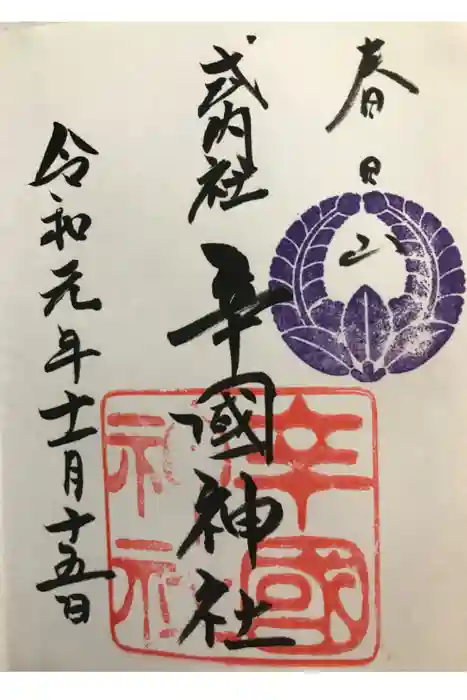 春日山
式内社
辛國神社
令和元年十一月十五日
辛國
神社